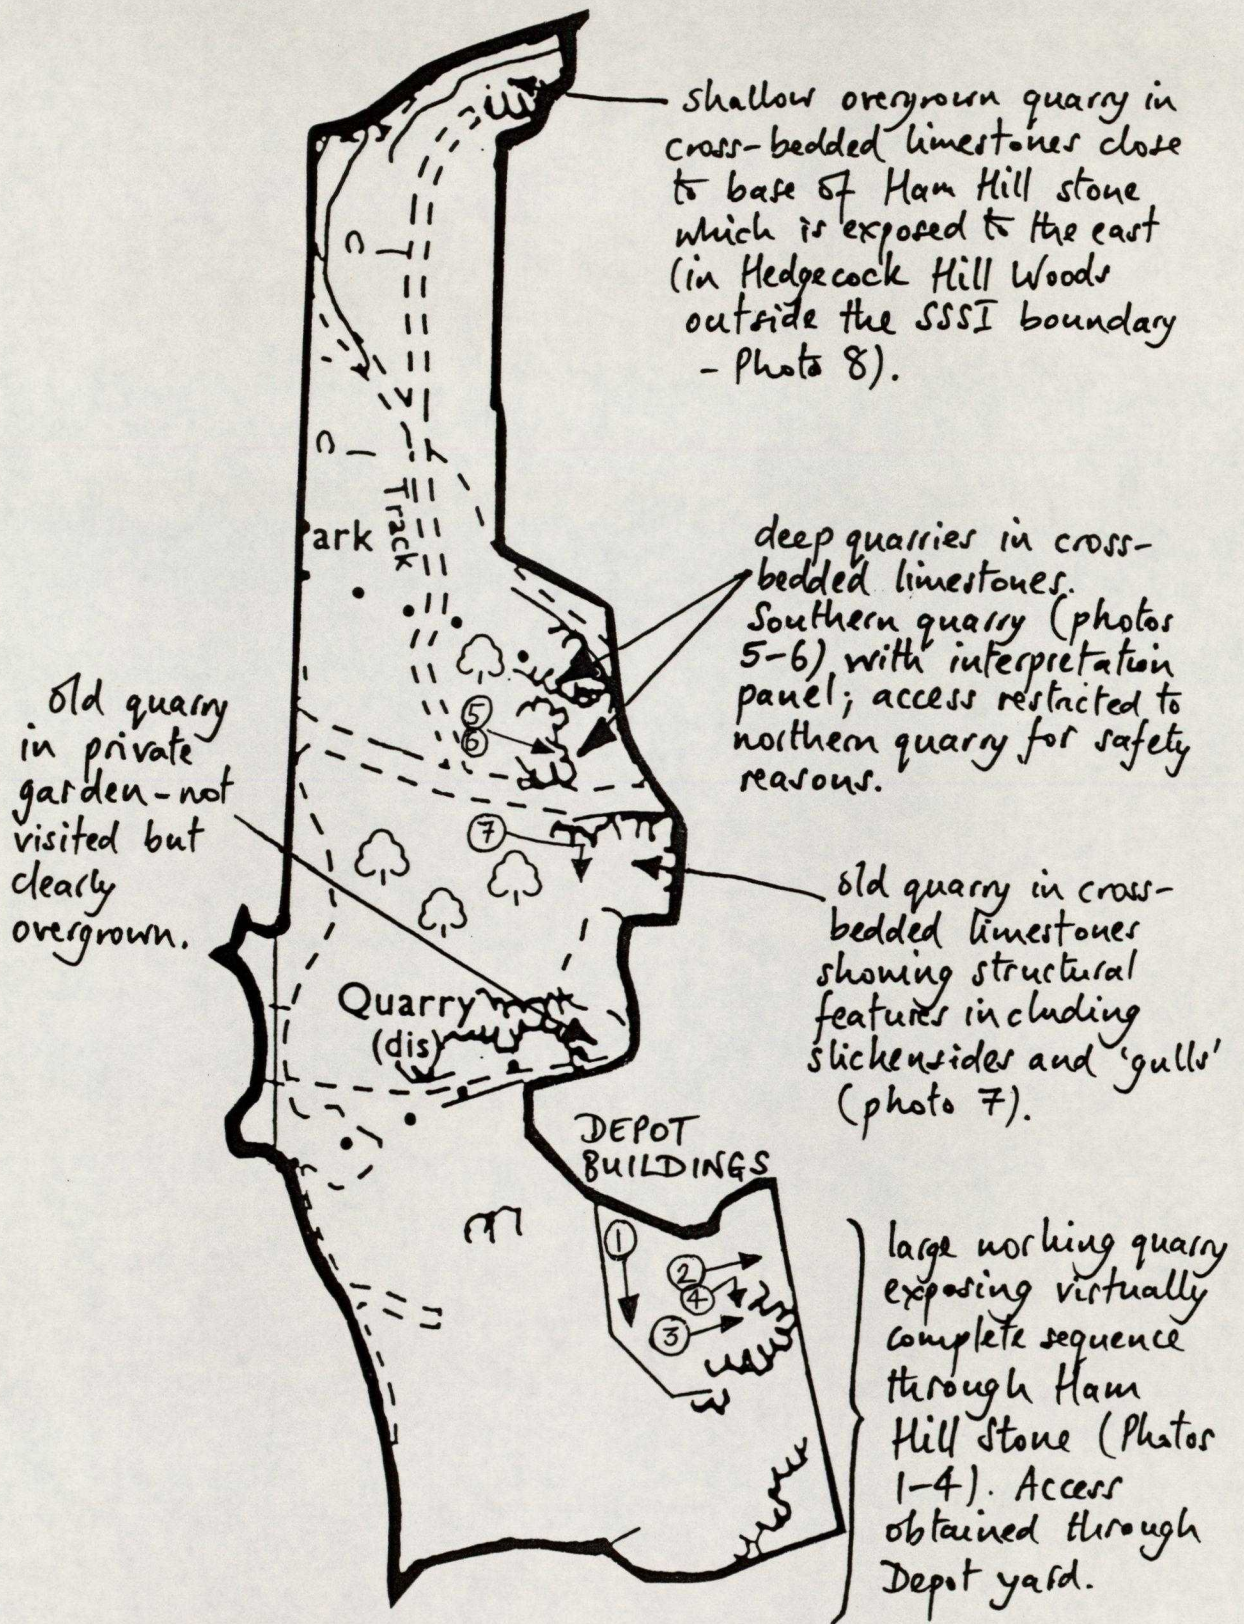 shallow overgrown quarry in
cross-bedded limestones close
to base of Ham Hill stone
which is exposed to the east
(in Hedgecock Hill Woods
outside the SSSI boundary
- Photo 8).
Track
ark
deep quarries in cross-
bedded limestones.
Southern quarry (photos
5-6) with interpretation
panel; access restricted to
northern quarry for safety
reasons.
old quarry
in private
garden - not
visited but
clearly
overgrown.
5
6
7
old quarry in cross-
bedded limestones
showing structural
features including
slickensides and 'gulls'
(photo 7).
Quarry
(dis)
DEPOT
BUILDINGS
1
2
4
3
large working quarry
exposing virtually
complete sequence
through Ham
Hill Stone (Photos
1-4). Access
obtained through
Depot yard.